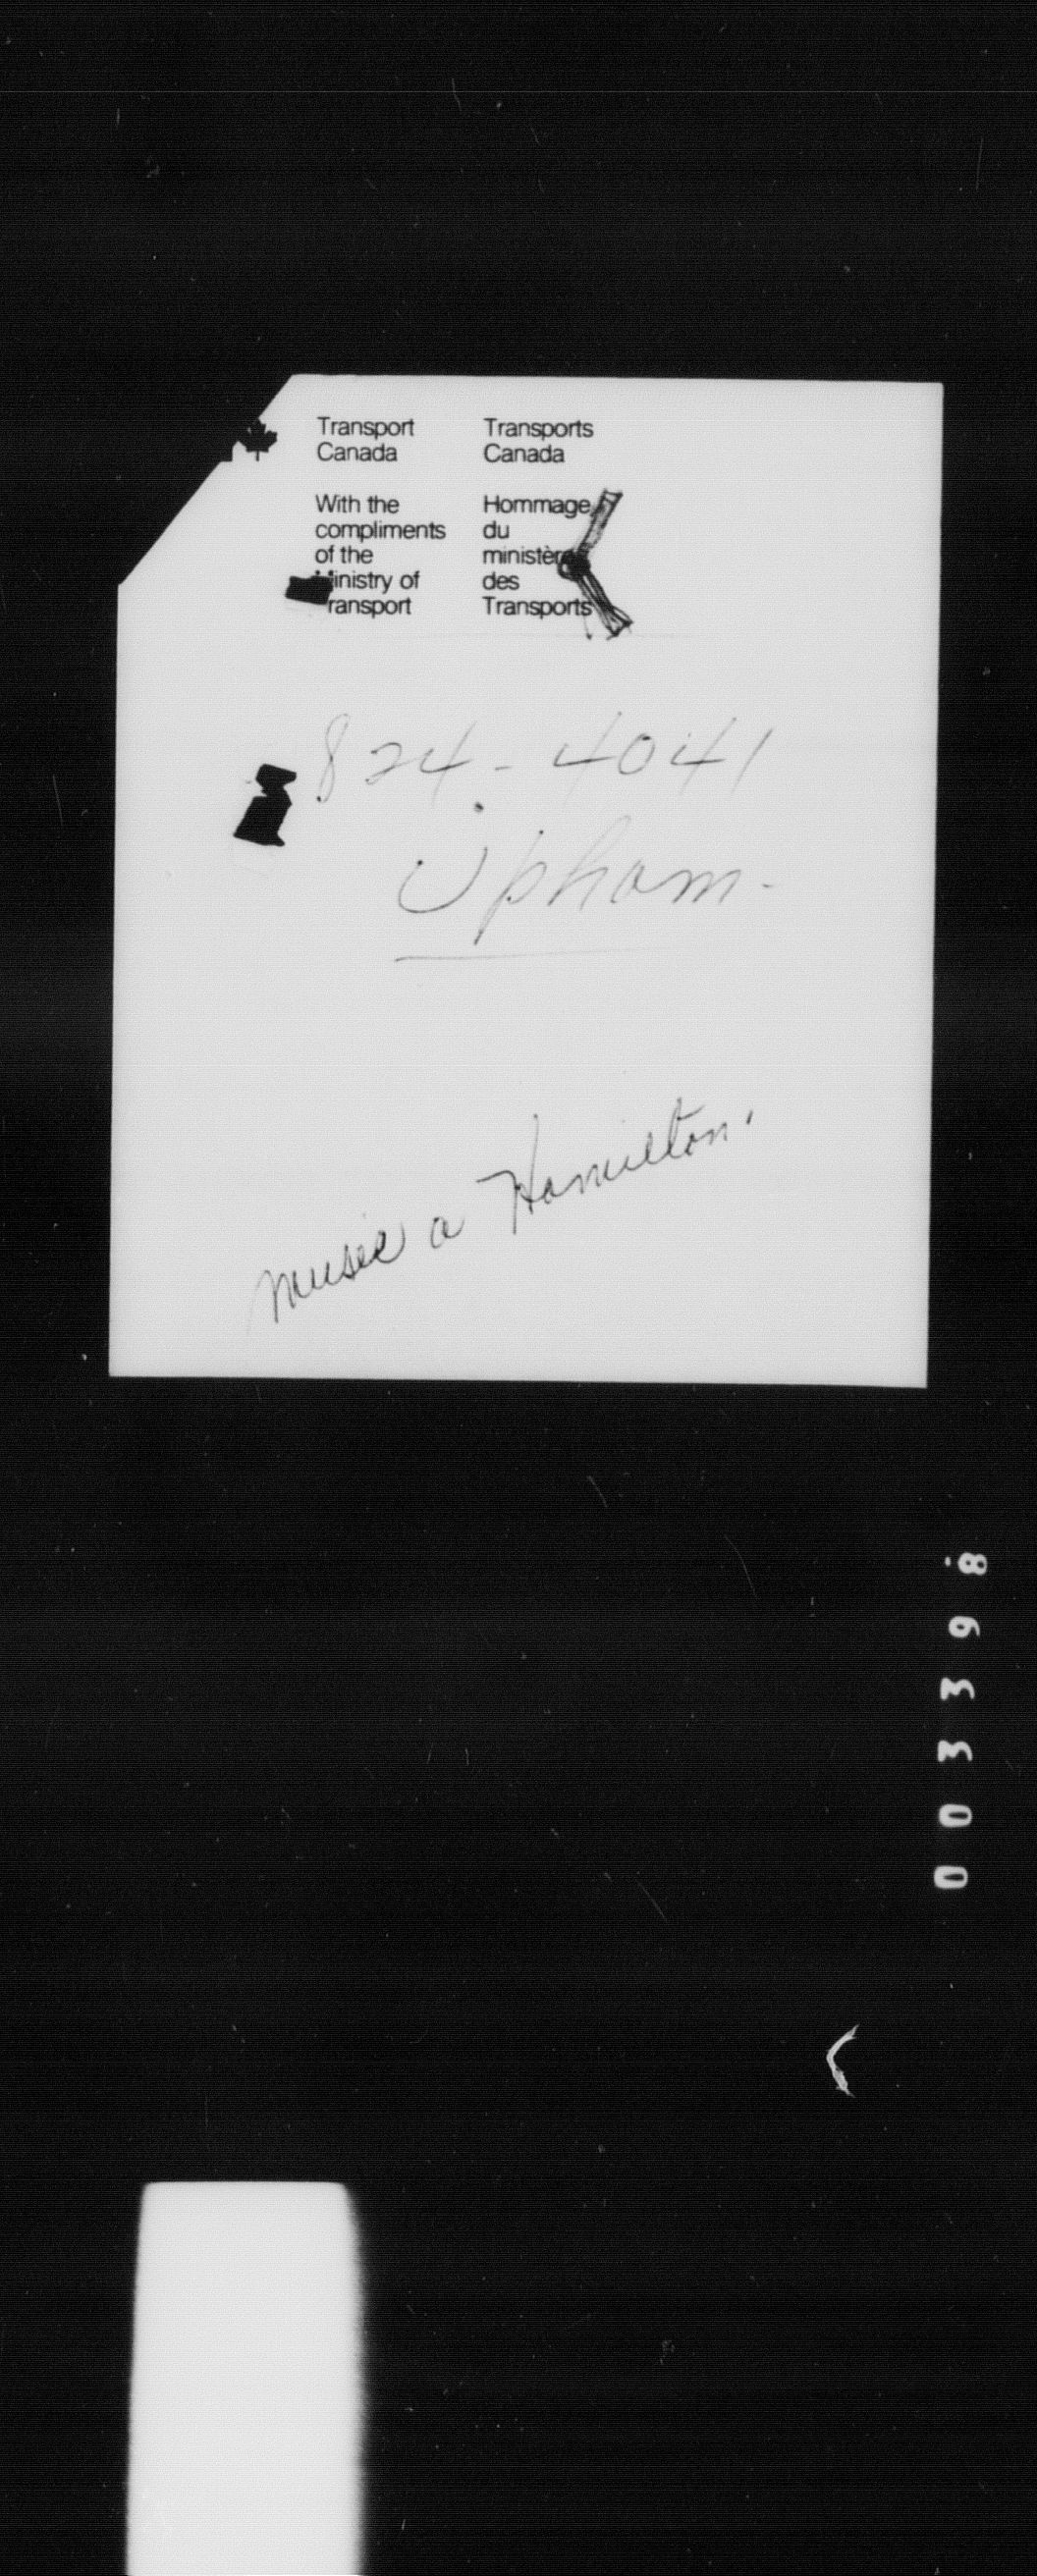 Transport Canada
With the
compliments
of the
Ministry of
Transport
Transports Canada
Hommage
du
ministère
des
Transports
824-4041
Upham.
Musee a Hamilton.
003398